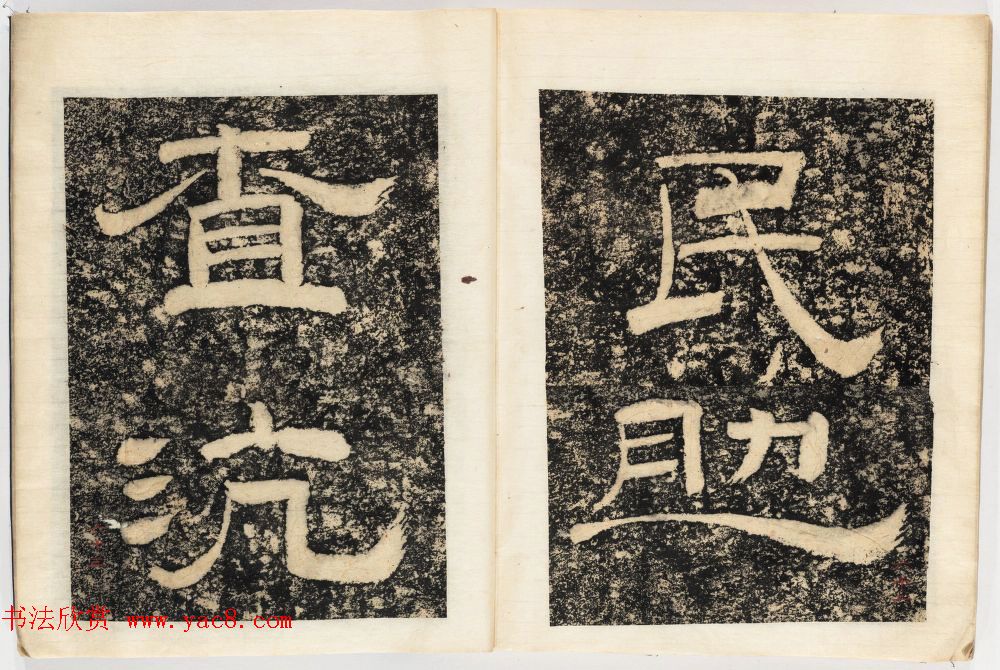 民助
查沆
书法欣赏 www.yac8.com